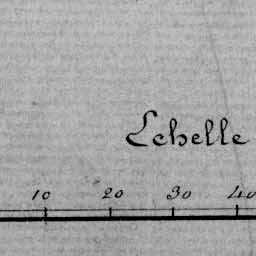 Echelle
10 20 30 40